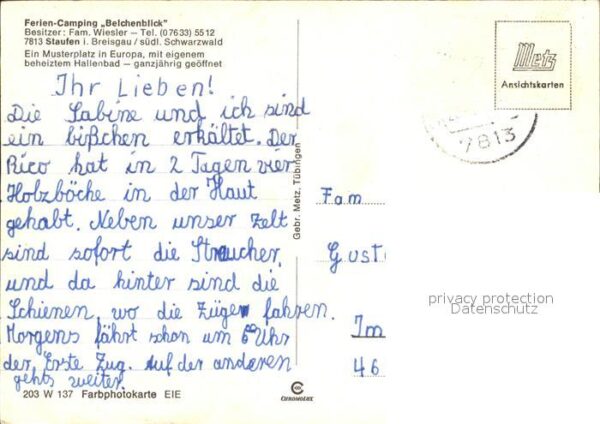 Ferien-Camping „Belchenblick"
Besitzer: Fam. Wiesler — Tel. (07633) 5512
7813 Staufen i. Breisgau / südl. Schwarzwald
Ein Musterplatz in Europa, mit eigenem
beheiztem Hallenbad — ganzjährig geöffnet
Metz
Ansichtskarten
7813
Ihr Lieben!
Die Sabine und ich sind
ein bißchen erkältet. Der
Rico hat in 2 Tagen vier
Holzböche in der Haut
gehabt. Neben unser Zelt
sind sofort die Straucher,
und da hinter sind die
Schienen, wo die Züger fahren.
Morgens fährt schon um 6⁰⁰ Uhr
der Erste Zug. Auf der anderen
gehts weiter.
Gebr. Metz, Tübingen
Fam
Gust
Im
46
privacy protection
Datenschutz
203 W 137 Farbphotokarte EIE
CHROMOLUX